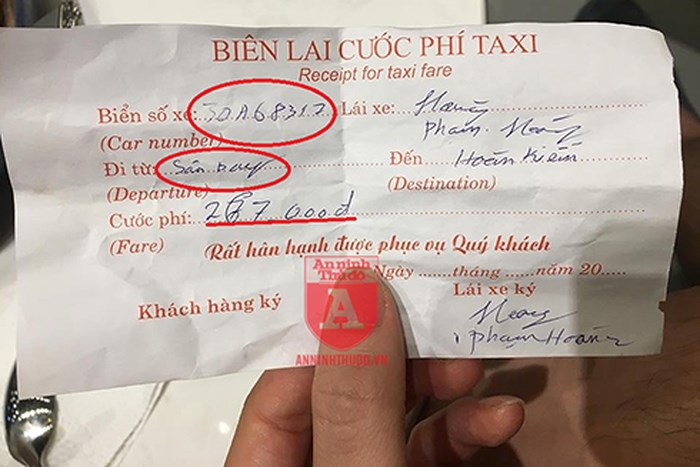 BIÊN LAI CƯỚC PHÍ TAXI
Receipt for taxi fare
Biển số xe: 30A68317 Lái xe: Hoàng
(Car number) Phạm Hoàng
Đi từ: Sân bay Đến Hoàn Kiếm
(Departure) (Destination)
Cước phí: 287 000đ
(Fare)
Rất hân hạnh được phục vụ Quý khách
An ninh Thủ đô
Ngày ....... tháng ...... năm 20.....
Khách hàng ký Lái xe ký
A
ANNINHTHUDO.VN
Phạm Hoàng